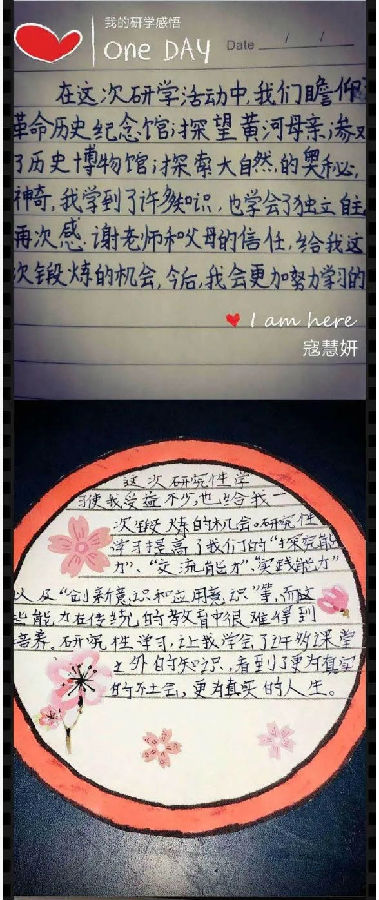 我的研学感悟
ONE DAY
Date / /
在这次研学活动中,我们瞻仰
革命历史纪念馆;探望黄河母亲;参观
了历史博物馆;探索大自然的奥秘,
神奇,我学到了许多知识,也学会了独立自主
再次感谢老师和父母的信任,给我这
次锻炼的机会,今后,我会更加努力学习的
I am here
寇慧妍
这次研究性学
习使我受益不少,也给我一
次锻炼的机会。研究性
学习提高了我们的“探究能
力”、“交流能力”、“实践能力”
以及“创新意识和应用意识”等,而这
些能力在传统的教育中很难得到
培养。研究性学习,让我学会了许多课堂
之外的知识,看到了更为真实
的社会,更为真实的人生。